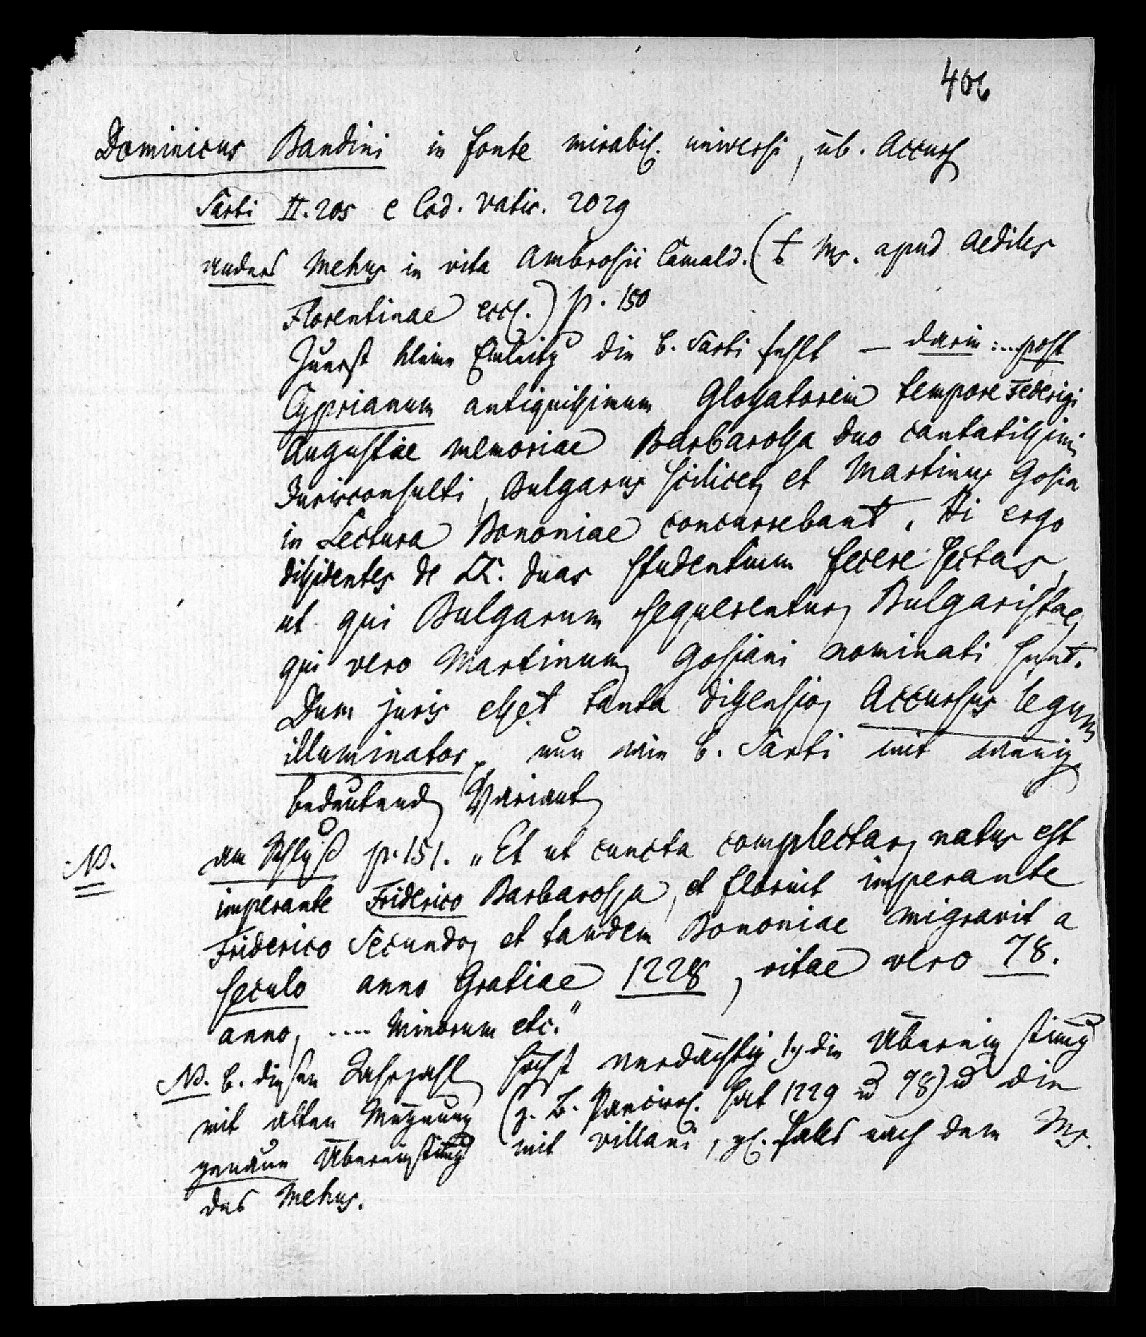 406
Dominicus Bandini in fonte mirabil. universi, üb. Accurs.
Sarti II. 205 e Cod. vatic. 2029
anders Mehus in vita Ambrosii Camald. (Ms. apud Aediles
Florentinae eccl.) p. 150
Zuerst kleine Einleitg die b. Sarti fehlt — darin: ... post
Cyprianum antiquissimum Glossatorem tempore Federigi
Augustae memoriae Barbarossa duo cantatissimi
Jurisconsulti, Bulgarus scilicet et Martinus Gosia
in Lectura Bononiae concurrebant. Hi ergo
dissidentes de LL. duas studentium fecere sectas,
ut qui Bulgarum sequerentur, Bulgaristae,
qui vero Martinum, Gosiani nominati sunt.
Dum juris esset tanta dissensio, Accursius legum
illuminator" nun wie b. Sarti mit wenig
bedeutend Variant
N. am Schluß p. 151. „Et ut cuncta complectar, natus est
imperante Friderico Barbarossa, et floruit imperante
Friderico Secundo, et tandem Bononiae migravit a
seculo anno Gratiae 1228, vitae vero 78.
anno, .... Minorum etc."
N. b. diesen Jahrzahl höchst verdächtig 1) die Übereinstimg
mit alten Meynung (z. B. Panciroll. hat 1229 u 78) u die
genaue Übereinstimg mit Villani, gl. falls nach dem Ms.
des Mehus.